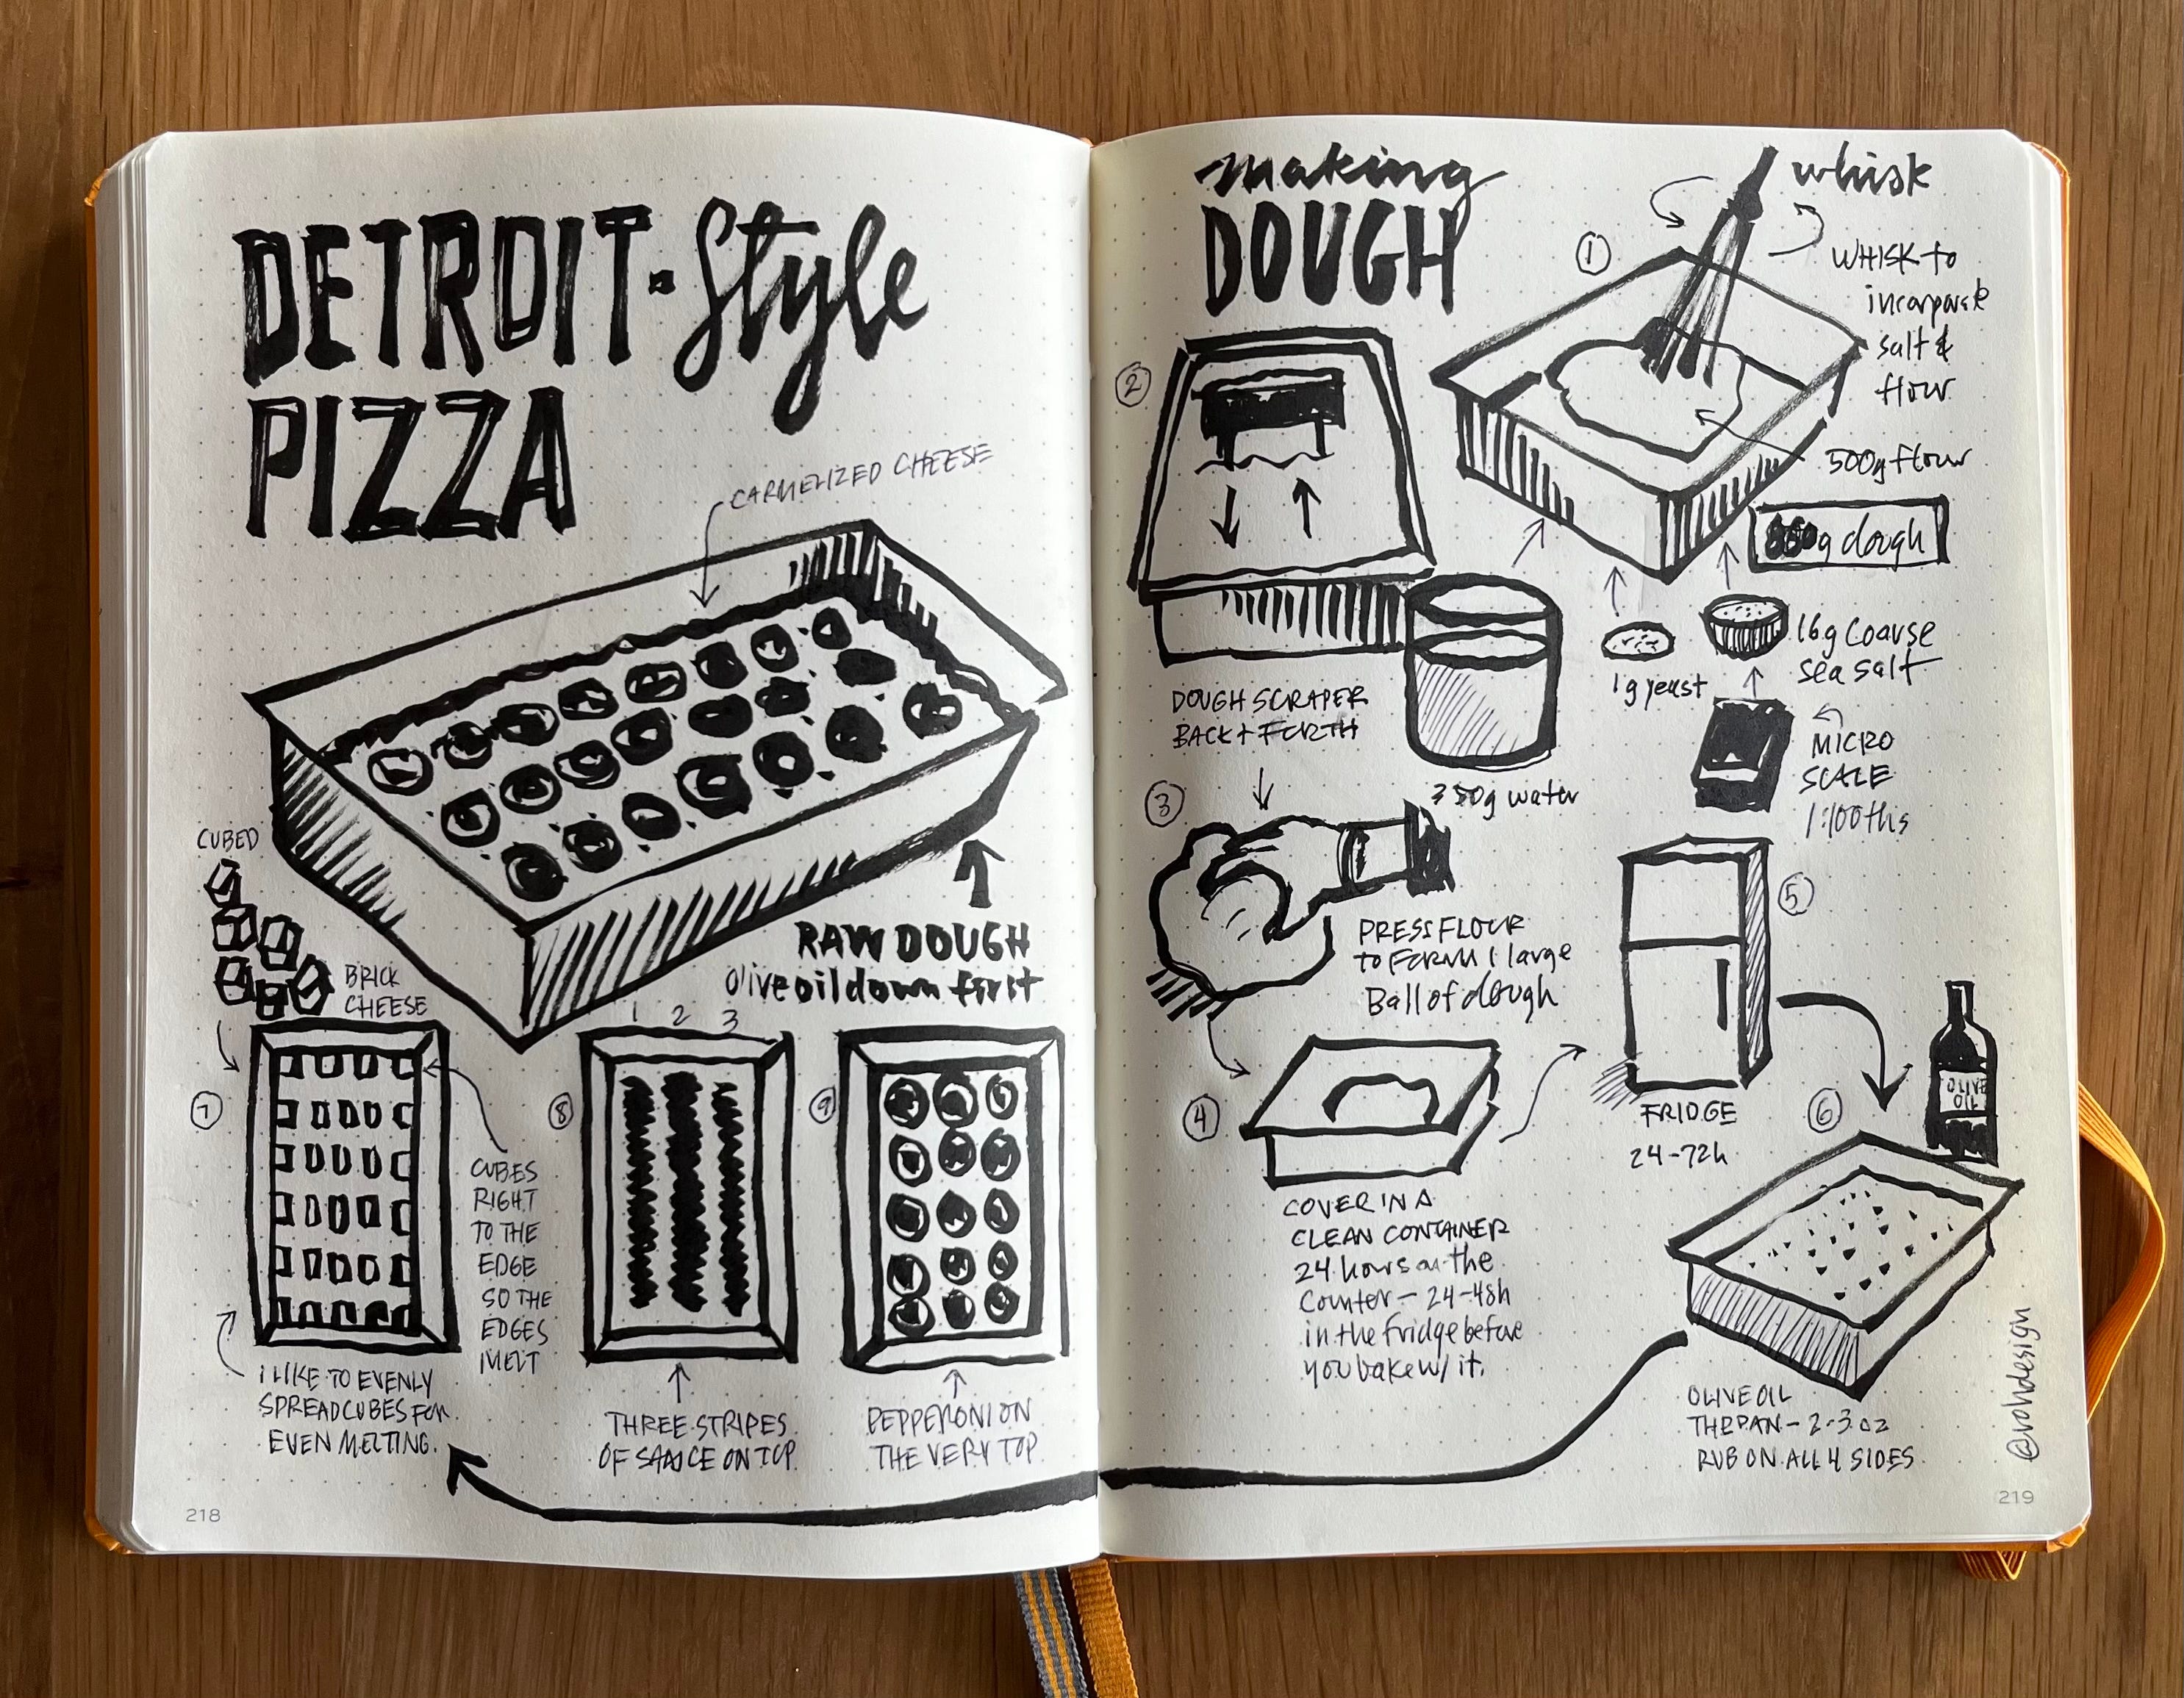 DETROIT-Style
PIZZA
CARMELIZED CHEESE
RAW DOUGH
Olive oil down first
CUBED
BRICK
CHEESE
7
CUBES
RIGHT
TO THE
EDGE
SO THE
EDGES
MELT
I LIKE TO EVENLY
SPREAD CUBES FOR
EVEN MELTING.
1 2 3
8
THREE STRIPES
OF SAUCE ON TOP
9
PEPPERONI ON
THE VERY TOP
218
making
DOUGH
1
whisk
WHISK to
incorporate
salt &
flour
500g flour
g dough
350g water
1g yeast
16g Coarse
sea salt
MICRO
SCALE
1:100ths
2
DOUGH SCRAPER
BACK + FORTH
3
PRESS FLOUR
to FORM 1 large
Ball of dough
4
COVER IN A
CLEAN CONTAINER
24 hours on the
Counter - 24-48h
in the fridge before
you bake w/ it.
5
FRIDGE
24-72h
6
OLIVE
OIL
OLIVE OIL
THE PAN - 2-3 oz
RUB ON ALL 4 SIDES
@rohdesign
219